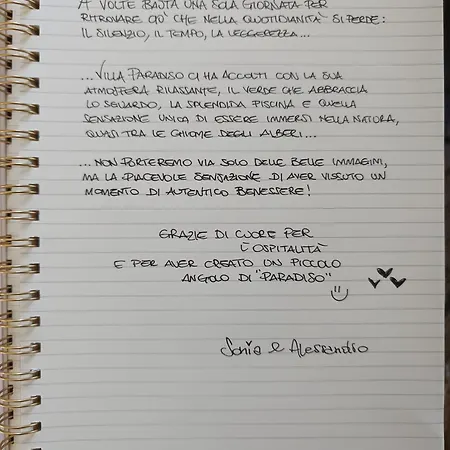 A VOLTE BASTA UNA SOLA GIORNATA PER
RITROVARE CIO' CHE NELLA QUOTIDIANITÀ SI PERDE:
IL SILENZIO, IL TEMPO, LA LEGGEREZZA...
...VILLA PARADISO CI HA ACCOLTI CON LA SUA
ATMOSFERA RILASSANTE, IL VERDE CHE ABBRACCIA
LO SGUARDO, LA SPLENDIDA PISCINA E QUELLA
SENSAZIONE UNICA DI ESSERE IMMERSI NELLA NATURA,
QUASI TRA LE CHIOME DEGLI ALBERI...
...NON PORTEREMO VIA SOLO DELLE BELLE IMMAGINI,
MA LA PIACEVOLE SENSAZIONE DI AVER VISSUTO UN
MOMENTO DI AUTENTICO BENESSERE!
GRAZIE DI CUORE PER
L'OSPITALITÀ
E PER AVER CREATO UN PICCOLO
ANGOLO DI "PARADISO"
Sonia e Alessandro